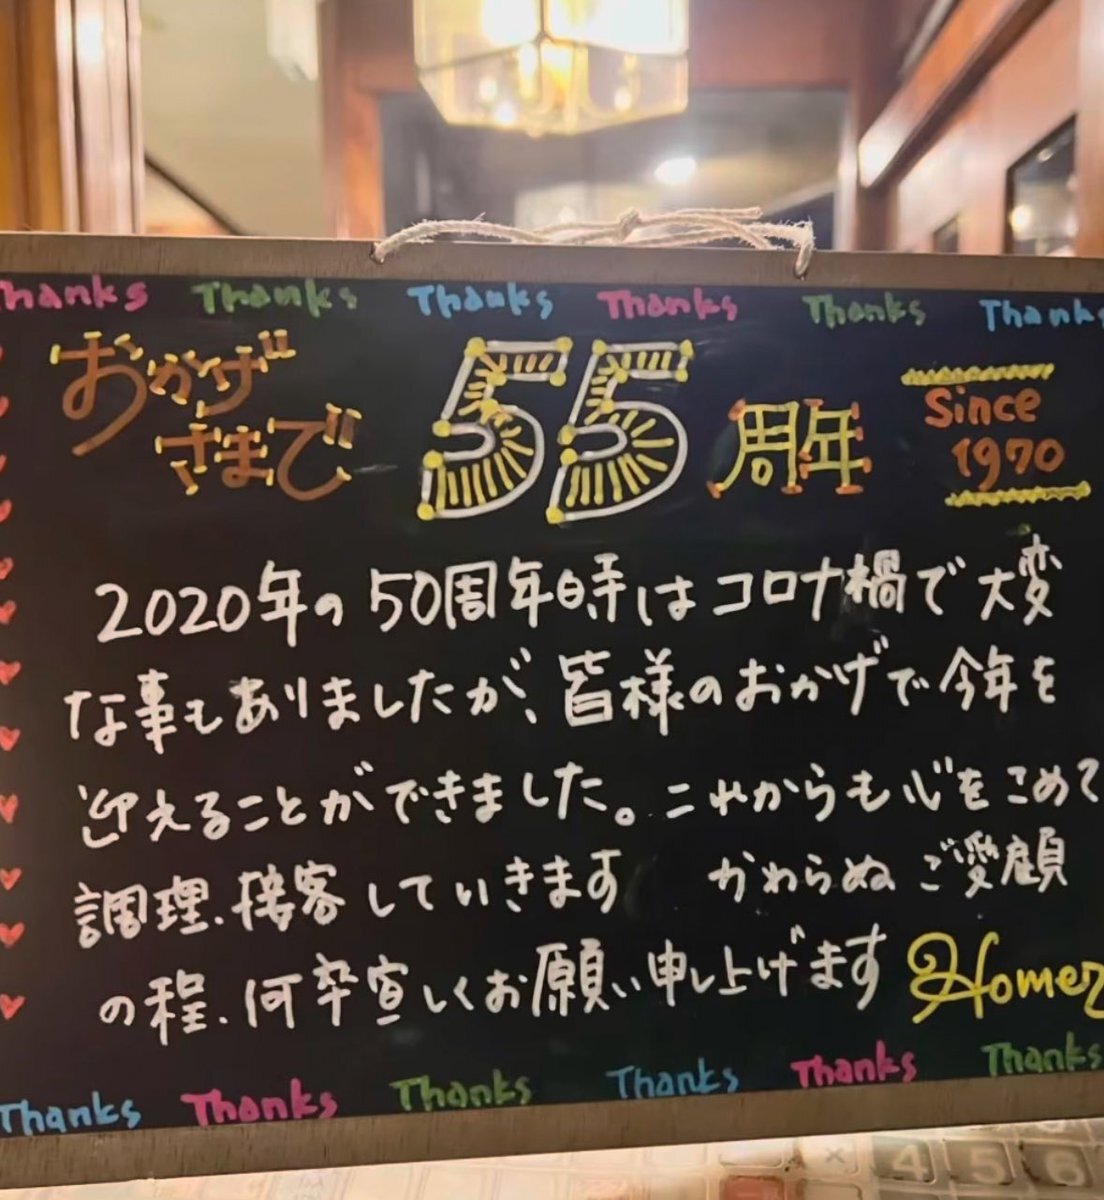 Thanks Thanks Thanks Thanks Thanks Thanks
おかげ
さまで
55周年
Since
1970
2020年の50周年時はコロナ禍で大変
な事もありましたが、皆様のおかげで今年を
迎えることができました。これからも心をこめて
調理、接客していきます かわらぬご愛顧
の程、何卒宜しくお願い申し上げます
Homer
Thanks Thanks Thanks Thanks Thanks Thanks
4 5 6